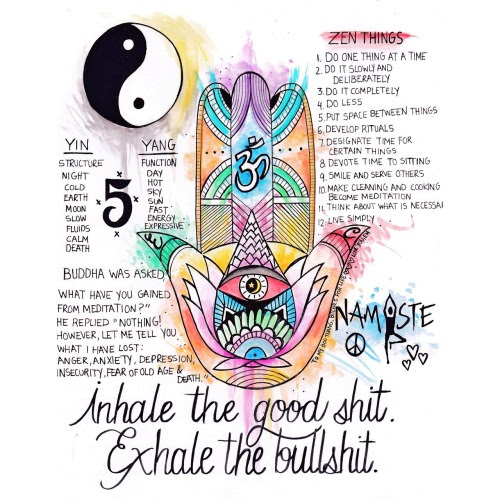 ZEN THINGS
1. DO ONE THING AT A TIME
2. DO IT SLOWLY AND
DELIBERATELY
3. DO IT COMPLETELY
4. DO LESS
5. PUT SPACE BETWEEN THINGS
6. DEVELOP RITUALS
7. DESIGNATE TIME FOR
CERTAIN THINGS
8. DEVOTE TIME TO SITTING
9. SMILE AND SERVE OTHERS
10. MAKE CLEANING AND COOKING
BECOME MEDITATION
11. THINK ABOUT WHAT IS NECESSAR
12. LIVE SIMPLY
ॐ
YIN
STRUCTURE
NIGHT
COLD
EARTH
MOON
SLOW
FLUIDS
CALM
DEATH
5
YANG
FUNCTION
DAY
HOT
SKY
SUN
FAST
ENERGY
EXPRESSIVE
BUDDHA WAS ASKED,
WHAT HAVE YOU GAINED
FROM MEDITATION?"
HE REPLIED "NOTHING!
HOWEVER, LET ME TELL YOU
WHAT I HAVE LOST:
ANGER, ANXIETY, DEPRESSION,
INSECURITY, FEAR OF OLD AGE &
DEATH."
NAMASTE
inhale the good shit.
Exhale the bullshit.